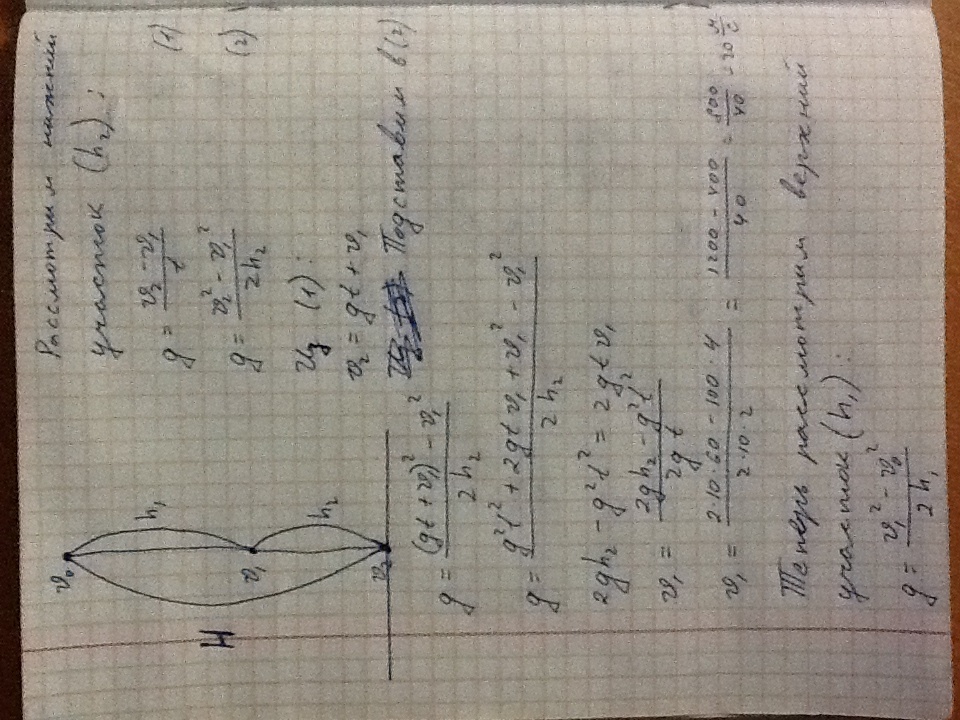 Рассмотрим нижний
участок (h₂):
g = (v₂ - v₁)/t (1)
g = (v₂² - v₁²)/2h₂ (2)
Из (1):
v₂ = gt + v₁
Подставим в (2)
g = ((gt + v₁)² - v₁²)/2h₂
g = (g²t² + 2gtv₁ + v₁² - v₁²)/2h₂
2gh₂ - g²t² = 2gtv₁
v₁ = (2gh₂ - g²t²)/2gt
v₁ = (2·10·60 - 100·4)/(2·10·2) = (1200 - 400)/40 = 800/40 = 20 м/с
Теперь рассмотрим верхний
участок (h₁):
g = (v₁² - v₀²)/2h₁
v₀
h₁
v₁
H
h₂
v₂